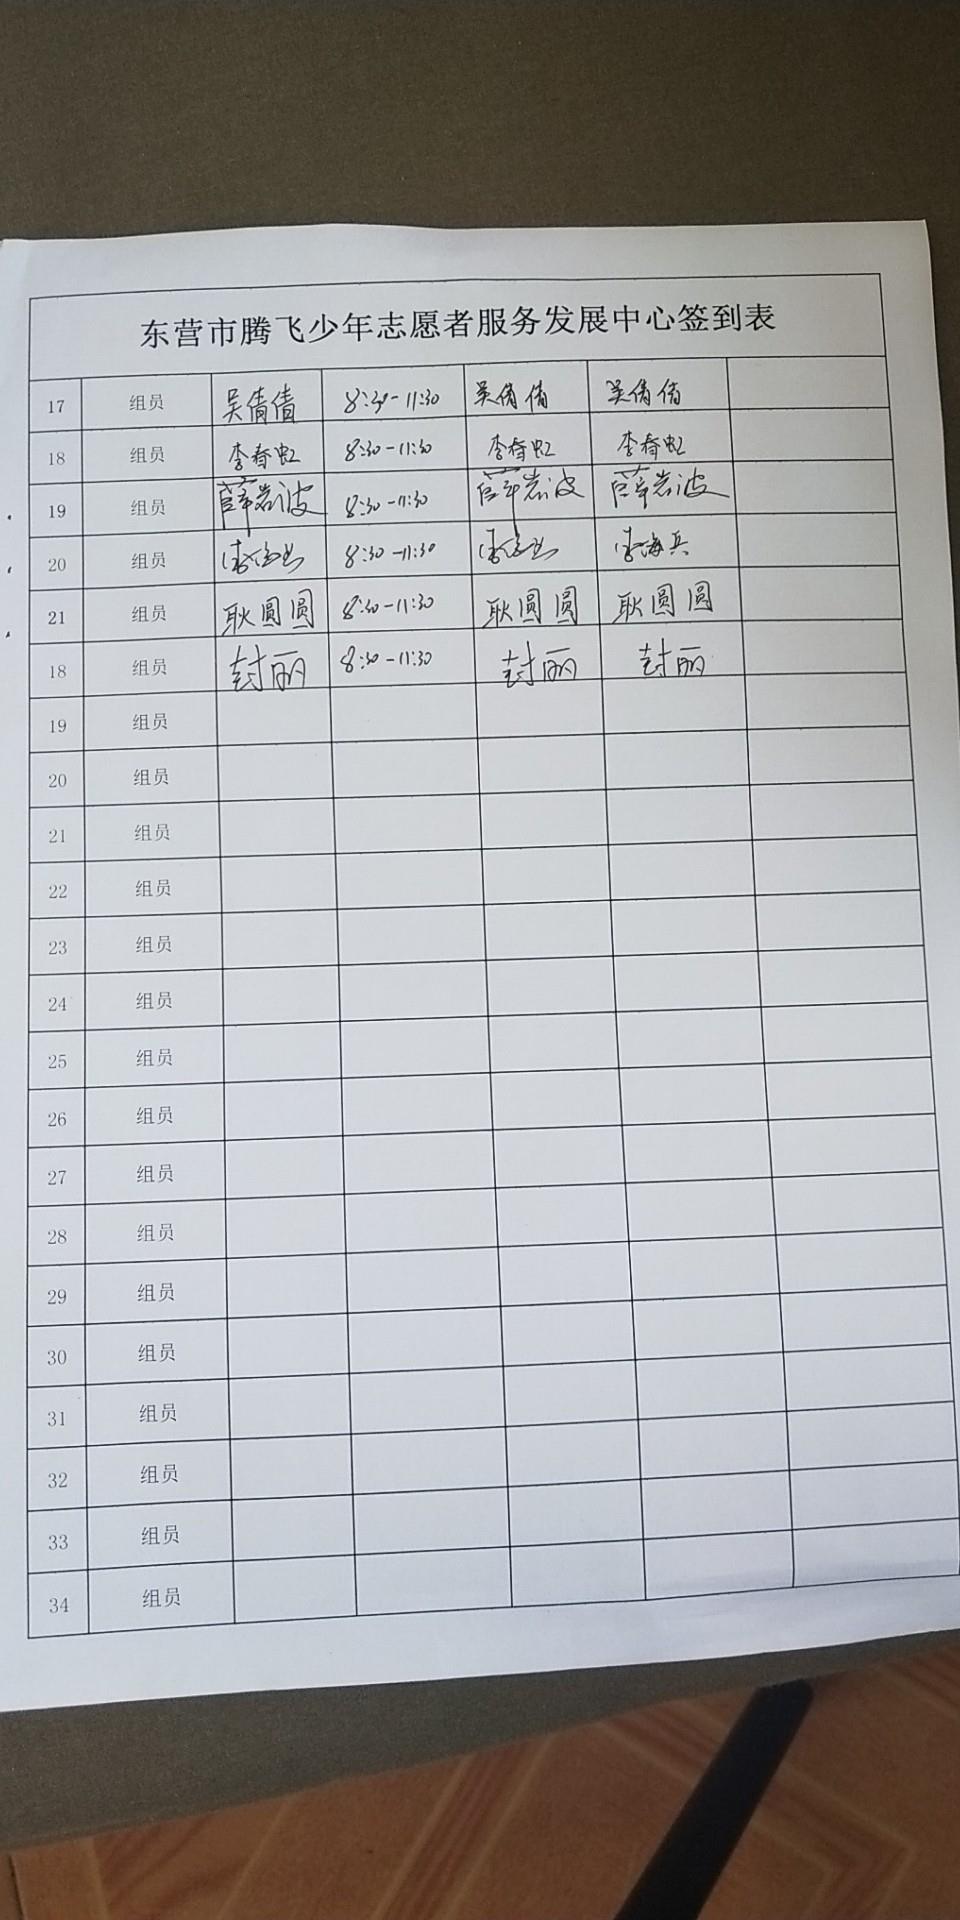 东营市腾飞少年志愿者服务发展中心签到表
17 组员 吴倩倩 8:30-11:30 吴倩倩 吴倩倩
18 组员 李春虹 8:30-11:30 李春虹 李春虹
19 组员 薛岩波 8:30-11:30 薛岩波 薛岩波
20 组员 8:30-11:30 李海兵
21 组员 耿圆圆 8:30-11:30 耿圆圆 耿圆圆
18 组员 封丽 8:30-11:30 封丽 封丽
19 组员
20 组员
21 组员
22 组员
23 组员
24 组员
25 组员
26 组员
27 组员
28 组员
29 组员
30 组员
31 组员
32 组员
33 组员
34 组员